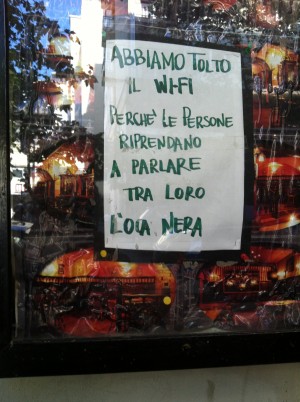 ABBIAMO TOLTO
IL WI-FI
PERCHE' LE PERSONE
RIPRENDANO
A PARLARE
TRA LORO
L'OCA NERA